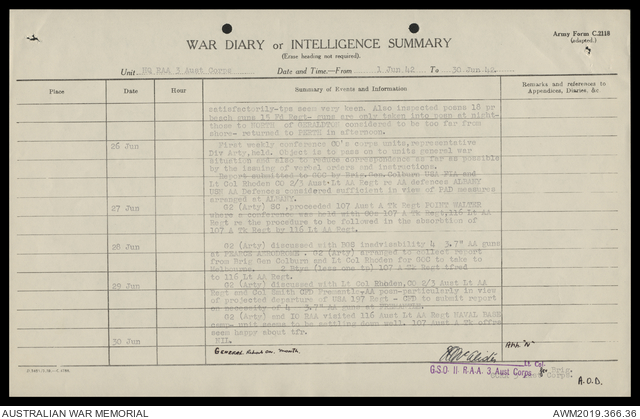 Army Form C.2118
(adapted.)
WAR DIARY or INTELLIGENCE SUMMARY
(Erase heading not required).
Unit HQ RAA 3 Aust Corps Date and Time.—From 1 Jun 42 To 30 Jun 42.
Place Date Hour Summary of Events and Information Remarks and references to Appendices, Diaries, &c.
satisfactorily-tps seem very keen. Also inspected posns 18 pr
beach guns 15 Fd Regt- guns are only taken into posn at night-
those to NORTH of GERALDTON considered to be too far from
shore- returned to PERTH in afternoon.
26 Jun First weekly conference CO's corps units, representative
Div Arty, held. Object is to pass on to units general war
situation and also to reduce correspondence as far as possible
by the issuing of verbal orders and instructions.
Report submitted to GOC by Brig. Gen. Colburn USA and
Lt Col Rhoden CO 2/3 Aust Lt AA Regt re AA defences ALBANY
USN AA Defences considered sufficient in view of PAD measures
arranged at ALBANY.
27 Jun G2 (Arty) SC, proceeded 107 Aust A Tk Regt POINT WALTER
where a conference was held with COs 107 A Tk Regt, 116 Lt AA
Regt re the procedure to be followed in the absorbtion of
107 A Tk Regt by 116 Lt AA Regt.
28 Jun G2 (Arty) discussed with BGS inadvisability 4 3.7" AA guns
at PEARCE AERODROME. G2 (Arty) arranged to collect report
from Brig Gen Colburn and Lt Col Rhoden for GOC to take to
Melbourne. 2 Btys (less one tp) 107 A Tk Regt tfred
to 116 Lt AA Regt.
29 Jun G2 (Arty) discussed with Lt Col Rhoden, CO 2/3 Aust Lt AA
Regt and Col Smith CFD Fremantle, AA posn-particularly in view
of projected departure of USA 197 Regt - CFD to submit report
on necessity of 4 3.7" AA guns at FREMANTLE.
G2 (Arty) and IO RAA visited 116 Aust Lt AA Regt NAVAL BASE
camp- unit seems to be settling down well. 107 Aust A Tk offrs
seem happy about tfr.
30 Jun NIL.
GENERAL Month.
APP "N"
Lt Col.
G.S.O. II R.A.A. 3 Aust Corps
A.O.D.
AUSTRALIAN WAR MEMORIAL
AWM2019.366.36